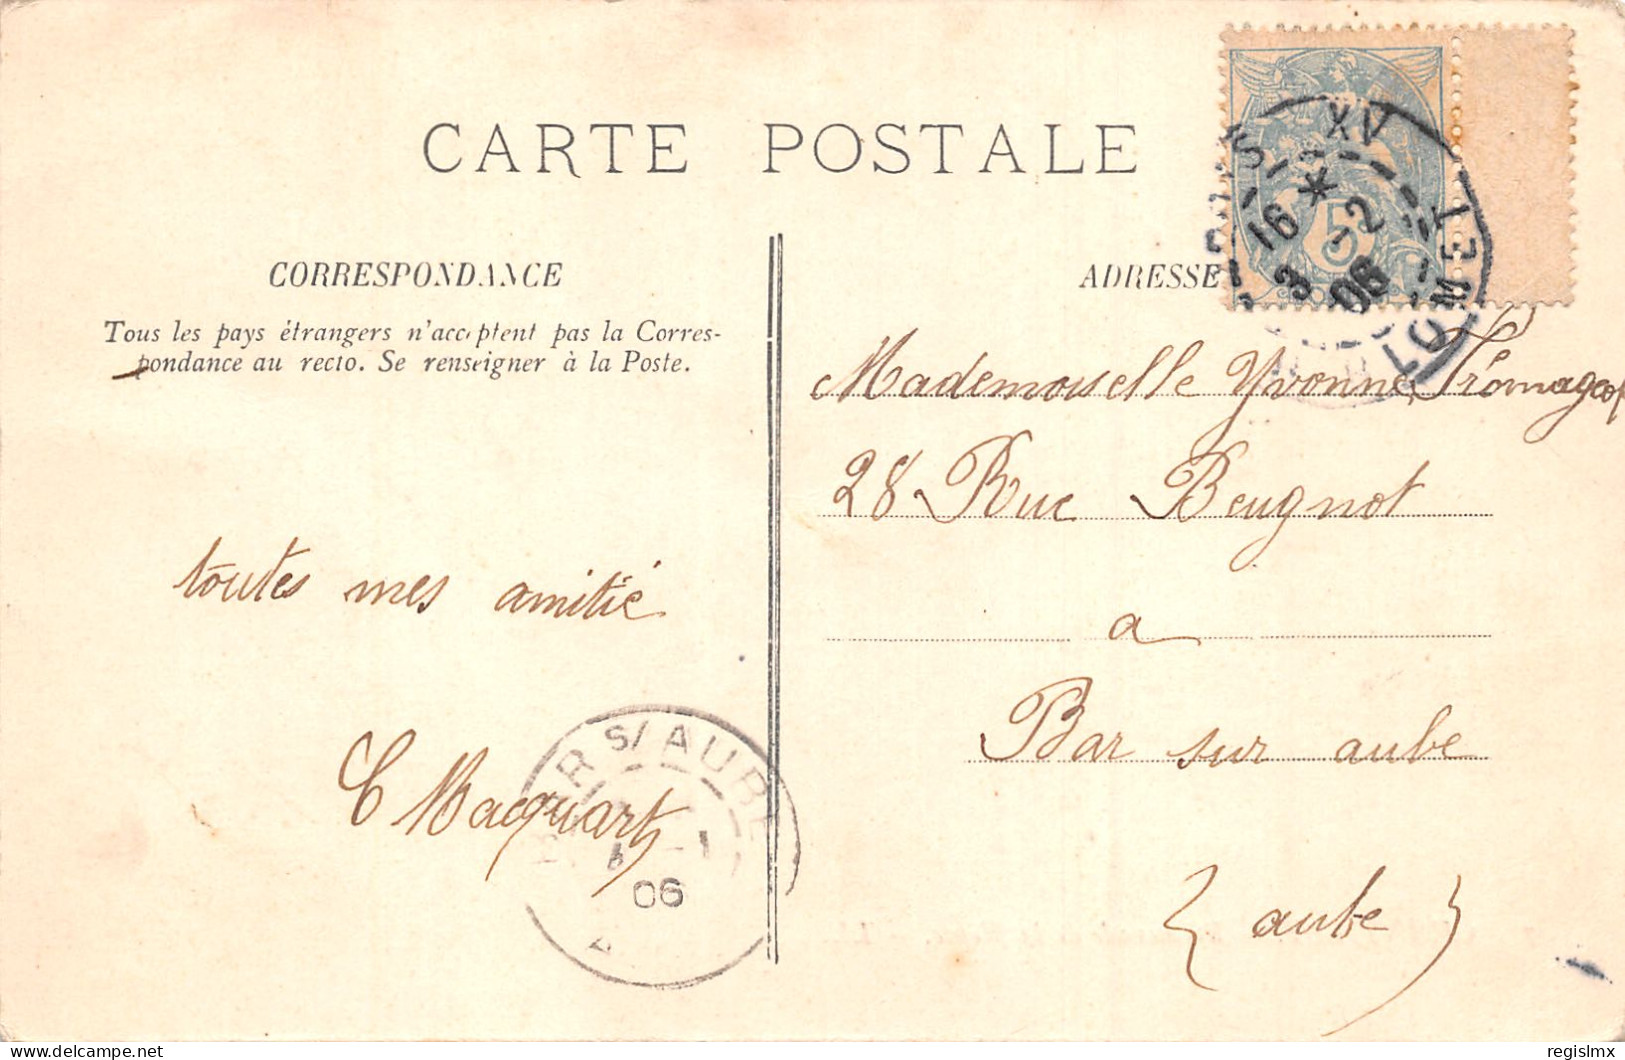 CARTE POSTALE
CORRESPONDANCE
Tous les pays étrangers n'acceptent pas la Corres-
pondance au recto. Se renseigner à la Poste.
toutes mes amitié
C Macquart
BAR S/AUBE
06
A
ADRESSE
PARIS XV
16 * 2
3 06
5
Mademoiselle Yvonne
28 Rue Beugnot
a
Bar sur aube
(aube)
delcampe.net
regislmx